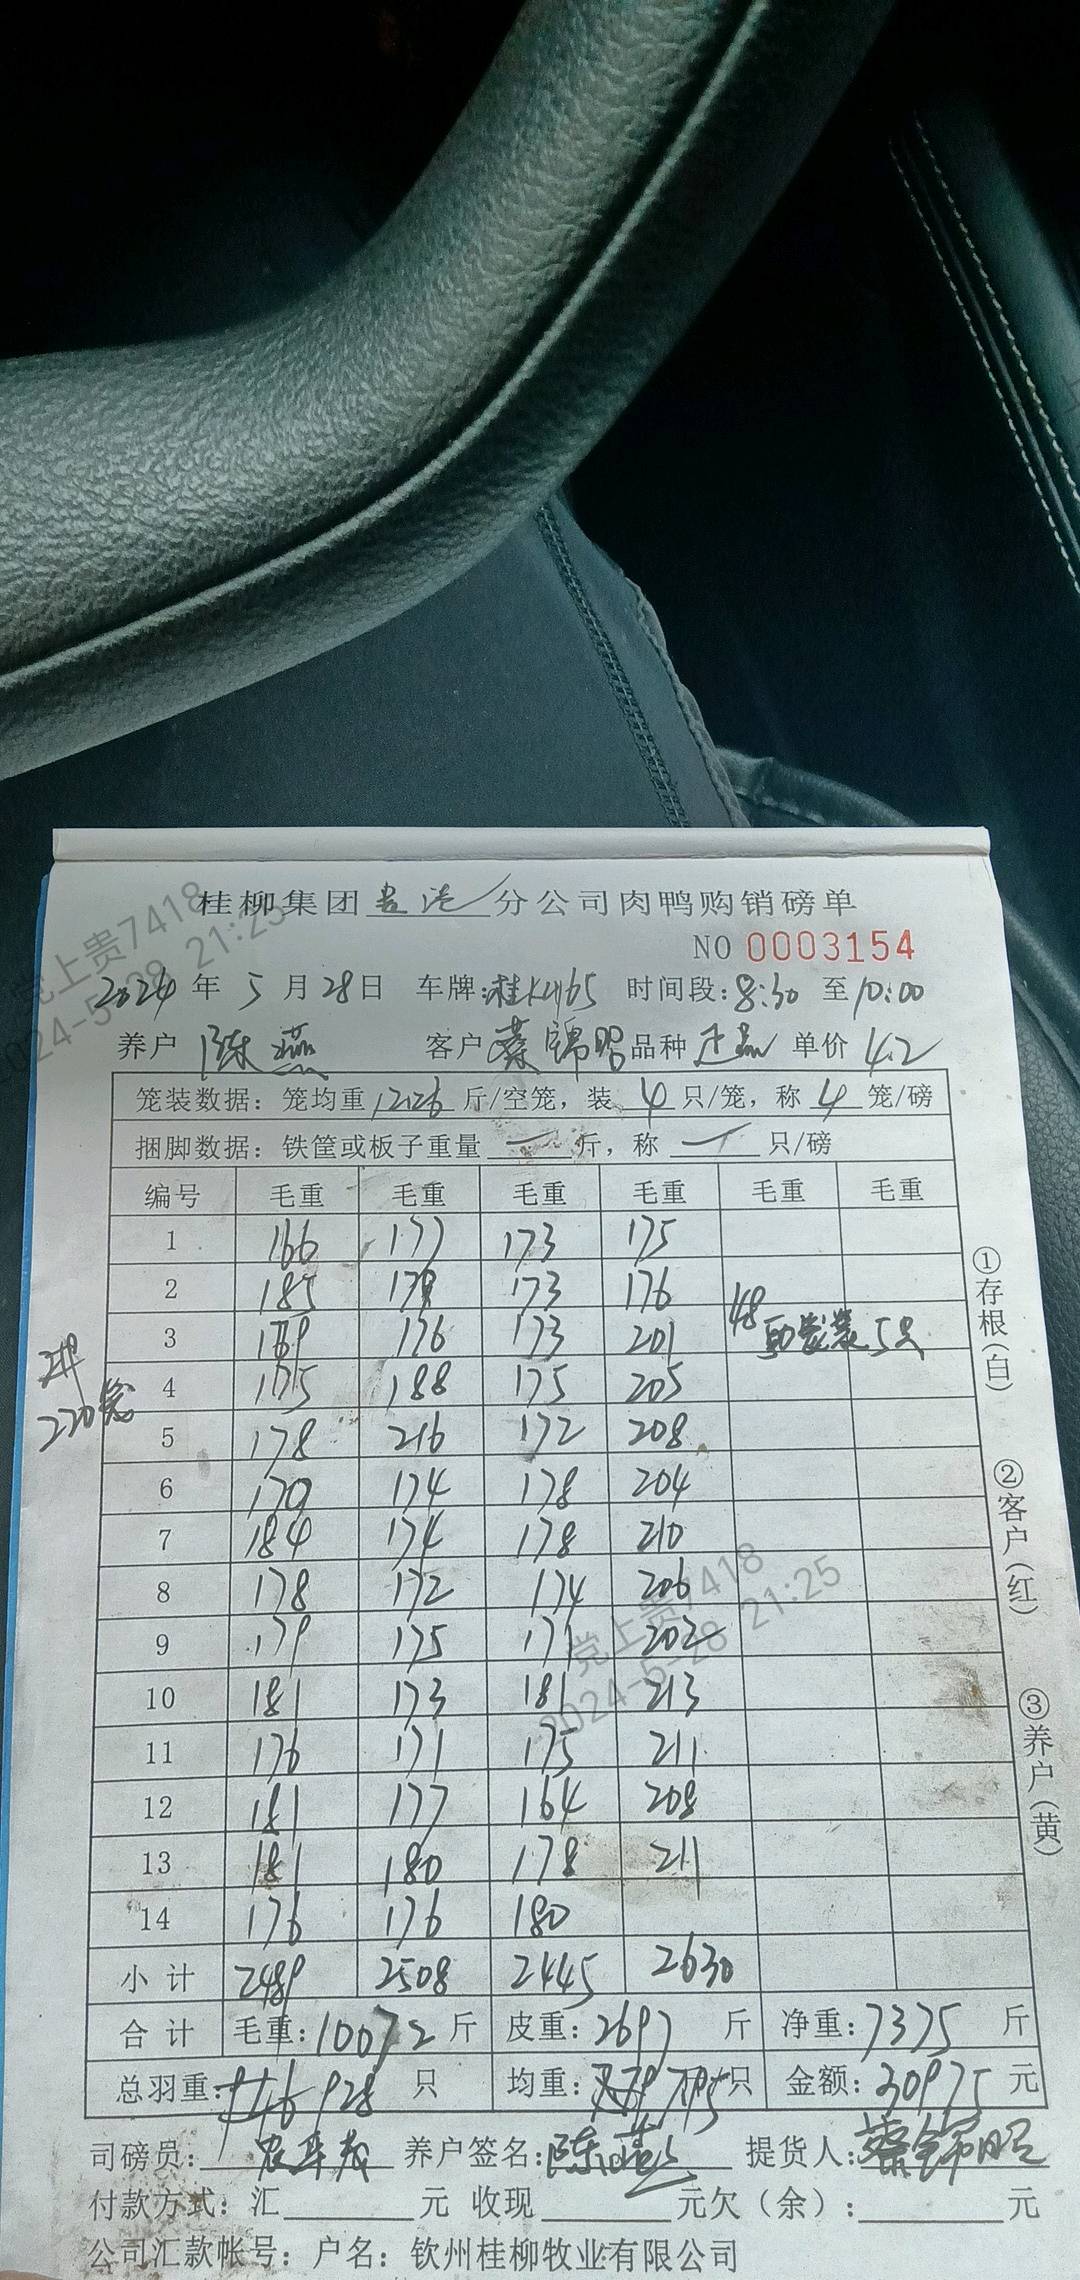 桂柳集团贵港分公司肉鸭购销磅单
NO 0003154
2024年5月28日 车牌:桂K4165 时间段:8:30至10:00
养户 陈燕 客户 蔡锦昭 品种 单价 4.2
笼装数据：笼均重12.26斤/空笼，装4只/笼，称4笼/磅
捆脚数据：铁筐或板子重量 一 斤，称 一 只/磅
编号 毛重 毛重 毛重 毛重 毛重 毛重
1 166 177 173 175
2 185 178 173 176
3 169 176 173 201 48 5只
4 175 188 175 205
220笼
5 178 216 172 208
6 170 174 178 204
7 184 174 178 210
8 178 172 174 206
9 179 175 171 202
10 181 173 181 213
11 176 171 175 211
12 181 177 164 208
13 181 180 178 211
14 176 176 180
小计 2489 2508 2445 2630
合计 毛重:10072斤 皮重:2697斤 净重:7375斤
总羽重: 928 只 均重: 7.95只 金额:30975元
司磅员: 养户签名:陈燕 提货人:蔡锦昭
付款方式：汇 元 收现 元欠（余）： 元
公司汇款帐号：户名：钦州桂柳牧业有限公司
①存根(白)
②客户(红)
③养户(黄)
党上贵7418
2024-5-28 21:25
党上贵7418
2024-5-28 21:25